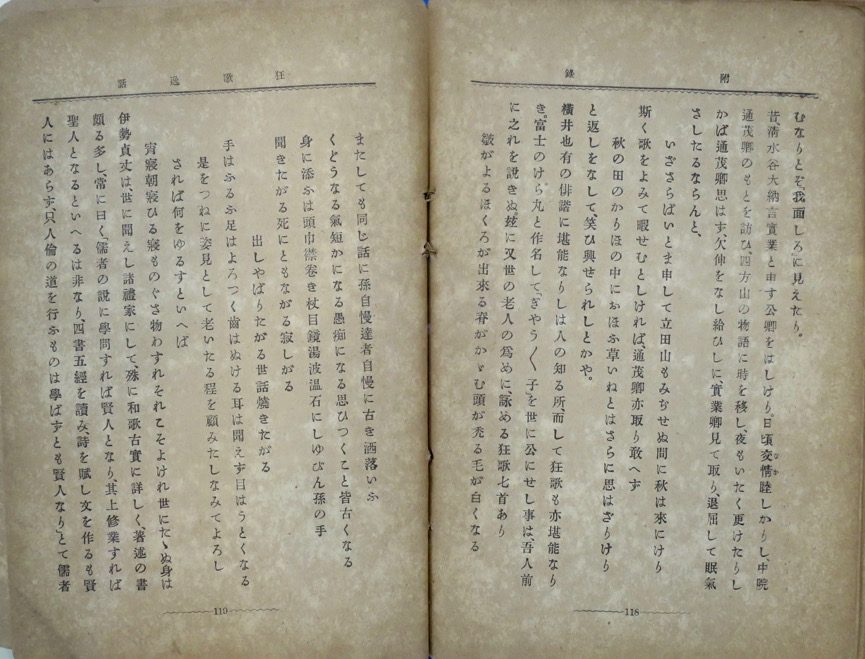 附錄
むなりとぞ、我面しろに見えたり。
昔、淸水谷大納言實業と申す公卿をはしけり。日頃交情睦しかりし、中院
通茂卿のもとを訪ひ、四方山の物語に時を移し、夜もいたく更けたりし
かば通茂卿思はず欠伸をなし給ひしに、實業卿見て取り、退屈して眠氣
さしたるならんと、
いざさらばいとま申して立田山もみぢせぬ間に秋は來にけり
斯く歌をよみて暇せむとしければ、通茂卿亦取り敢へず
秋の田のかりほの中におほふ草いねとはさらに思はざりけり
と返しをなして、笑ひ興せられしとかや。
橫井也有の俳諧に堪能なりしは人の知る所、而して狂歌も亦堪能なり
き。富士のけら丸と作名して「ぎやう〳〵子」を世に公にせし事は、吾人前
に之れを說きぬ、玆に又世の老人の爲めに、詠める狂歌七首あり
皺がよるほくろが出來る脊がかゞむ頭が禿る毛が白くなる
118
狂歌逸話
またしても同じ話に孫自慢達者自慢に古き洒落いふ
くどうなる氣短かになる愚痴になる思ひつくこと皆古くなる
身に添ふは頭巾襟卷き杖目鏡湯波溫石にしゆびん孫の手
聞きたがる死にともながる寂しがる
出しやばりたがる世話燒きたがる
手はふるふ足はよろつく齒はぬける耳は聞えず目はうとくなる
是をつねに姿見として老いたる程を顧みたしなみてよろし
されば何をゆるすといへば
宵寢朝寢ひる寢ものぐさ物わすれそれこそよけれ世にたゝぬ身は
伊勢貞丈は、世に聞えし諸禮家にして、殊に和歌古實に詳しく、著述の書
頗る多し、常に曰く、儒者の說に學問すれば賢人となり、其上修業すれば
聖人となるといへるは非なり、四書五經を讀み、詩を賦し文を作るも賢
人にはあらず、只人倫の道を行ふものは學ばずとも賢人なり、とて儒者
119